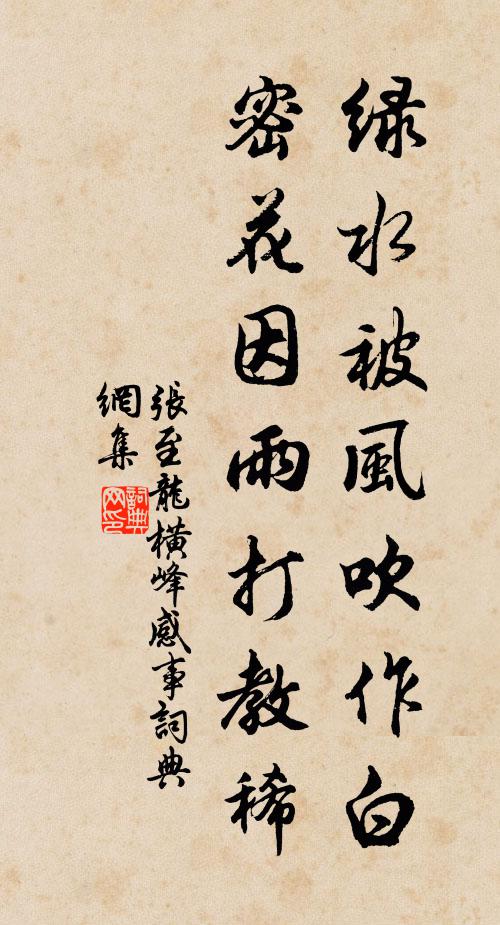 绿水被風吹作白
密花因雨打教稀
張至龍横峰感事詞典
網集
詞典网印